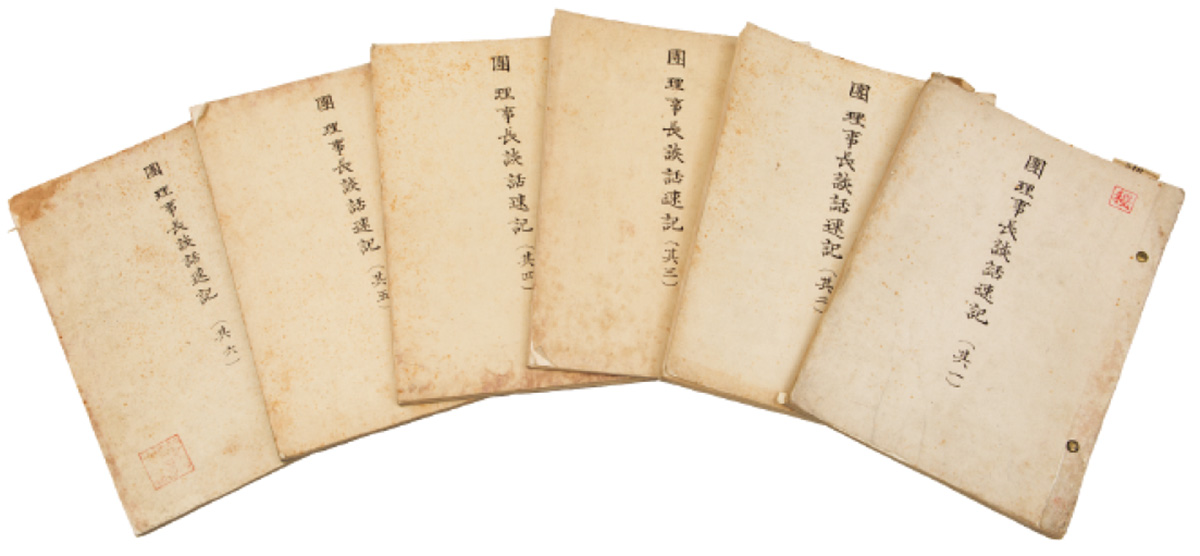 團理事長談話速記(其一)
秘
團理事長談話速記(其二)
團理事長談話速記(其三)
團理事長談話速記(其四)
團理事長談話速記(其五)
團理事長談話速記(其六)